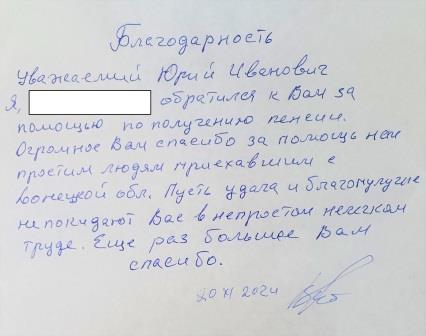 Благодарность
Уважаемый Юрий Иванович
Я, обратился к Вам за
помощью по получению пенсии.
Огромное Вам спасибо за помощь нам
простым людям приехавшим с
Донецкой обл. Пусть удача и благополучие
не покидают Вас в непростом нелегком
труде. Еще раз большое Вам
спасибо.
20 XI 2024